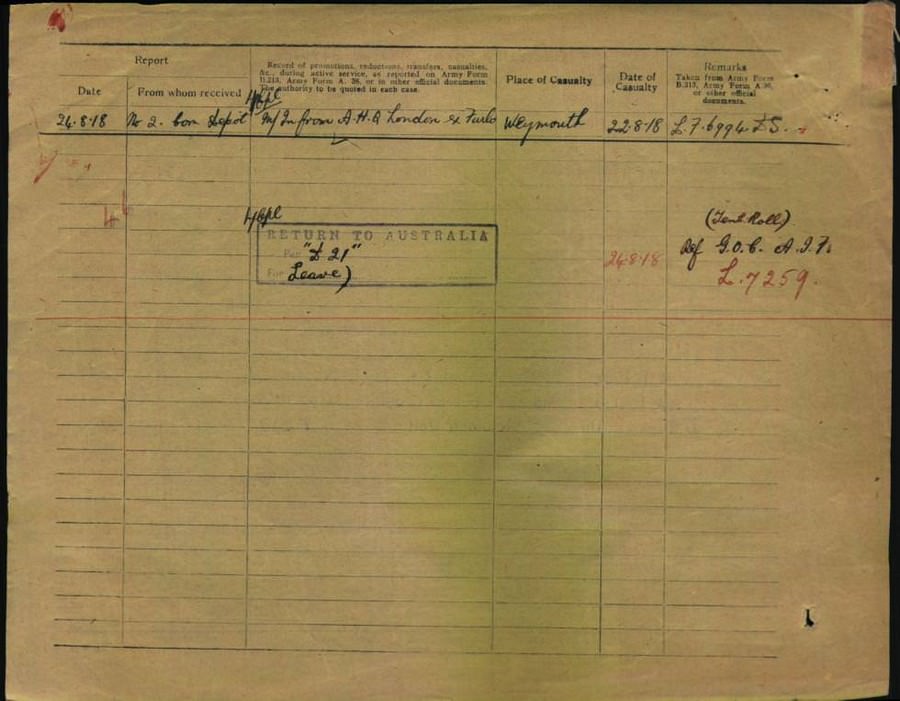 Report
Record of promotions, reductions, transfers, casualties,
&c., during active service, as reported on Army Form
B.213, Army Form A. 36, or in other official documents.
The authority to be quoted in each case.
Place of Casualty
Date of
Casualty
Remarks
Taken from Army Form
B.213, Army Form A.36,
or other official
documents.
Date
From whom received
24.8.18 No 2. Com Depot M/In from A.H.Q London ex Furlo Weymouth 22.8.18 L.7.6994 DS.
RETURN TO AUSTRALIA
Per "D 21"
For Leave)
24.8.18
(Tent Roll)
Ref G.O.C. A.I.F.
L.7259.